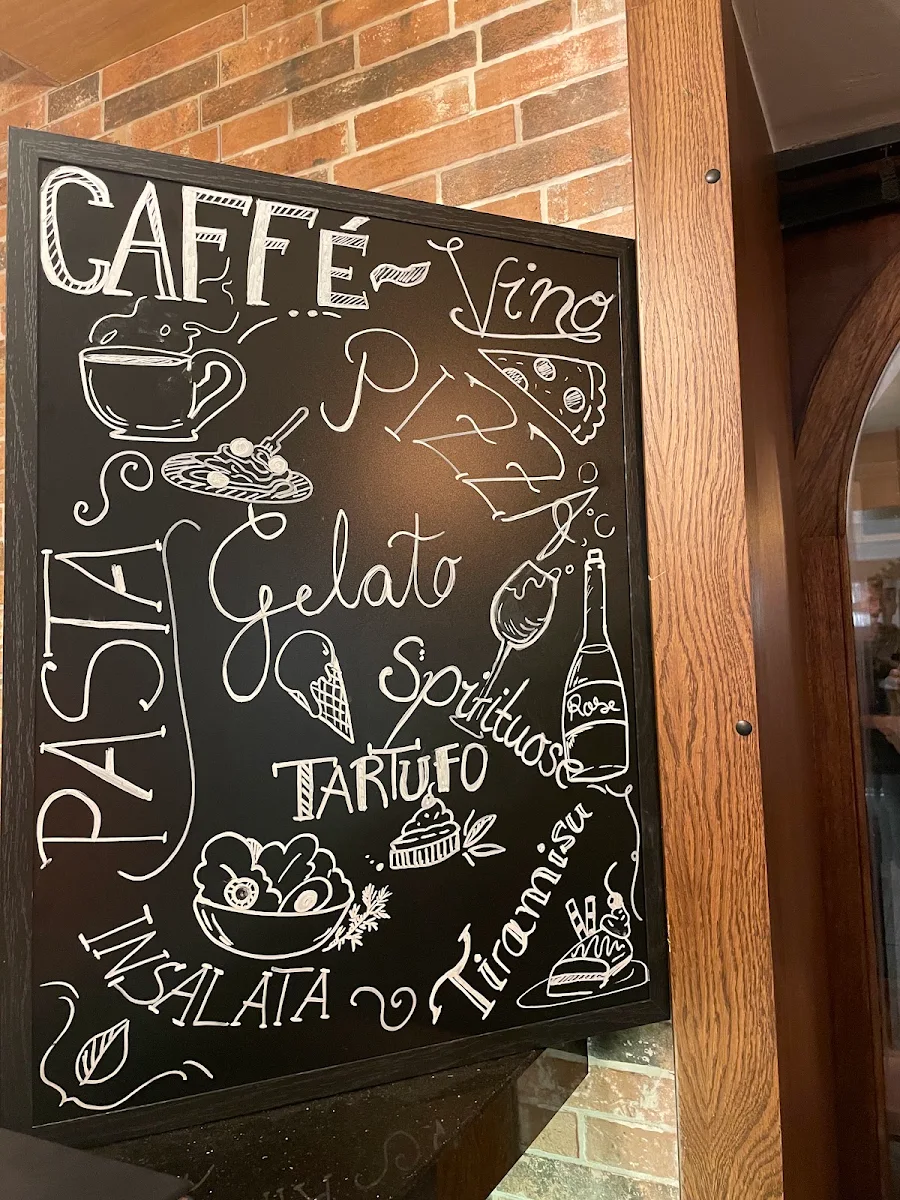 CAFFÉ
Vino
PIZZA
PASTA
Gelato
Spirituose
Rose
TARTUFO
Tiramisu
INSALATA